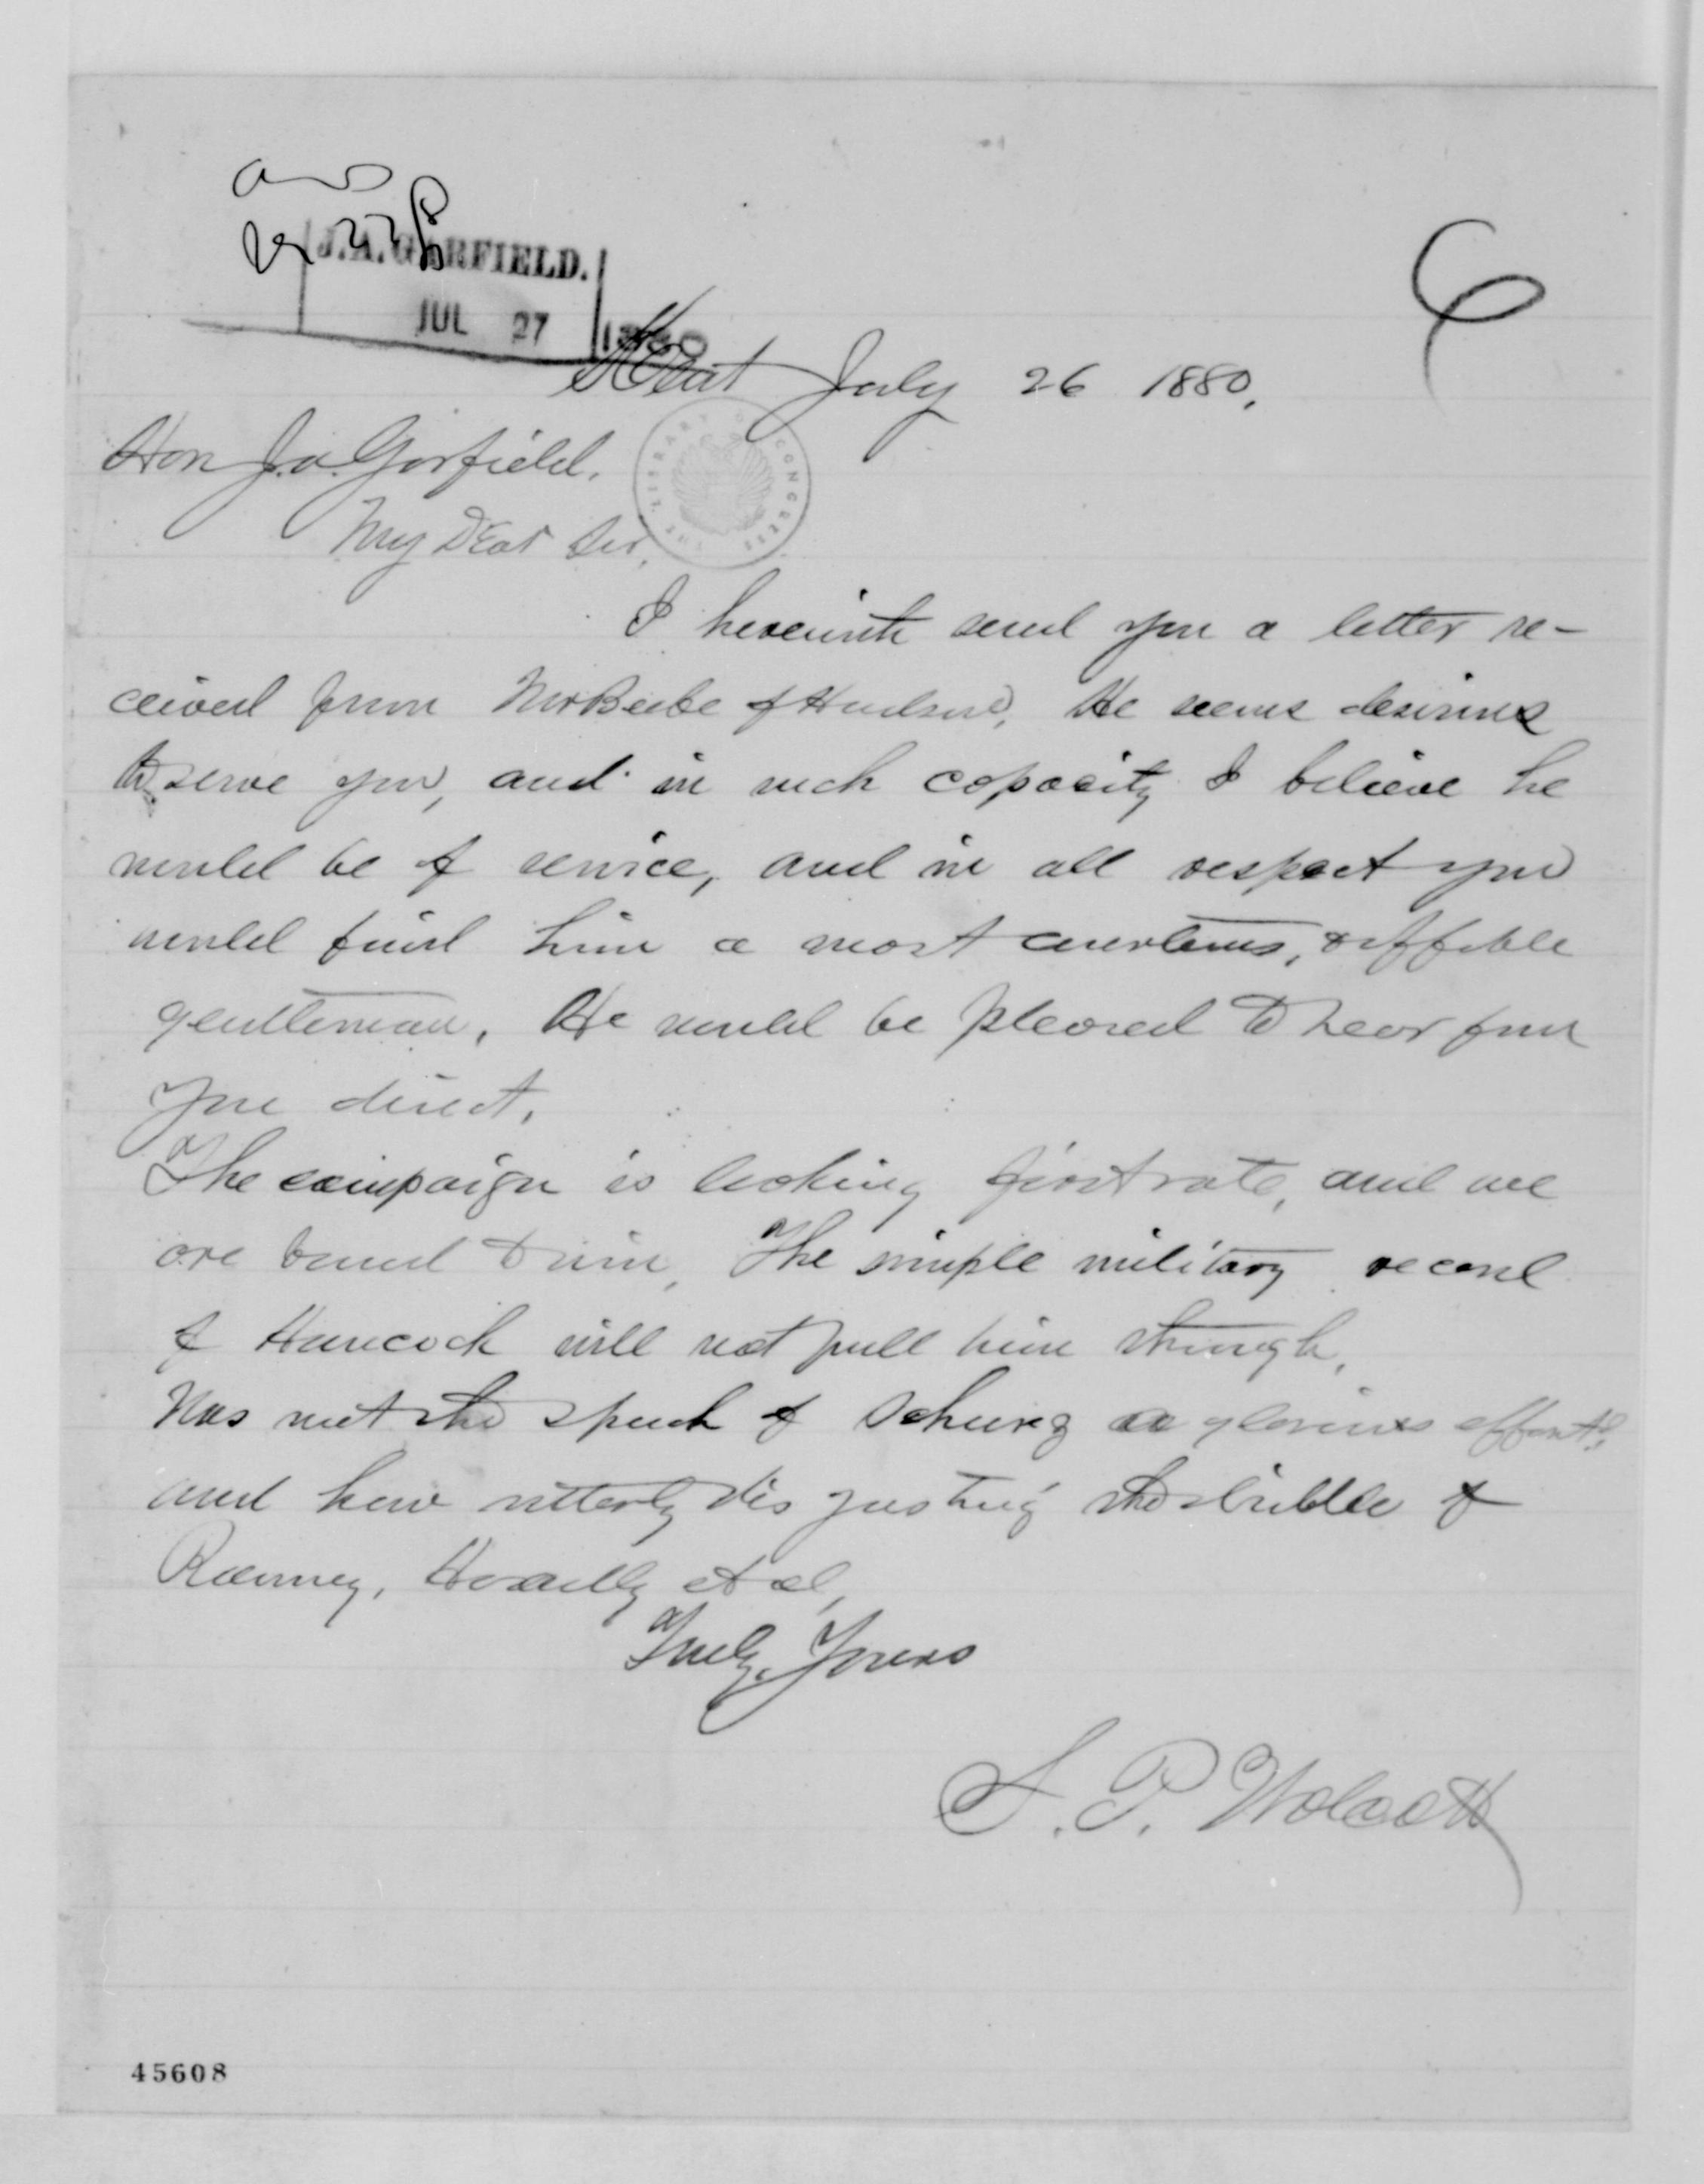 ans
J.A. GARFIELD.
JUL 27 1880
Kent July 26 1880.
Hon J. A. Garfield.
THE LIBRARY OF CONGRESS
My Dear Sir,
I herewith send you a letter re-
ceived from Mr Beebe of Hudson, He seems desirous
to serve you, and in such capacity I believe he
would be of service, and in all respect you
would find him a most courteous, & affable
gentleman. He would be pleased to hear from
you direct.
The campaign is looking first rate, and we
are bound to win, The simple military record
of Hancock will not pull him through,
Was not the speech of Schurz a glorious effort?
and how utterly disgusting the dribble of
Ranney, Hoadly et al,
Truly Yours
S. P. Wolcott
45608